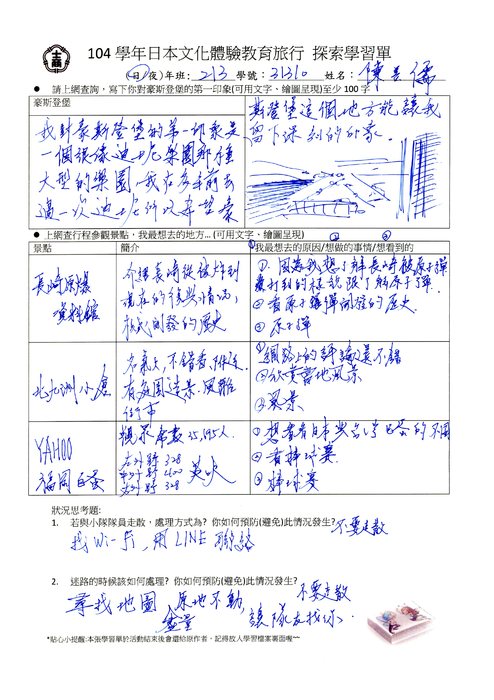 104 學年日本文化體驗教育旅行 探索學習單
(日/夜)年班: 213 學號: 31310 姓名: 陳 儒
● 請上網查詢，寫下你對豪斯登堡的第一印象(可用文字、繪圖呈現)至少 100 字
豪斯登堡
我對豪斯登堡的第一印象是
一個很像迪士尼樂園那種
大型的樂園，我在多年前去
過一次迪士尼所以希望豪
斯登堡這個地方能讓我
留下深刻的印象。
● 上網查行程參觀景點，我最想去的地方…(可用文字、繪圖呈現)
景點 簡介 ①我最想去的原因/②想做的事情/③想看到的
長崎原爆
資料館
介紹長崎從被炸到
現在的
的歷史
①因為我想了解長崎被原子彈
②看原子彈爆開發的歷史
③原子彈
北九洲小倉
名氣上,不錯香
有庭園造景 風雅
①網路上的評論是不錯
②欣賞當地風景
③風景
YAHOO
福岡巨蛋
觀眾席數35,195人
左外野 328
中外野 400
右外野 328
英呎
①想看看日本與台灣巨蛋的不同
②看棒球賽
③棒球賽
狀況思考題:
1. 若與小隊隊員走散，處理方式為? 你如何預防(避免)此情況發生?
不要走散
找Wi-Fi,用LINE聯絡
2. 迷路的時候該如何處理? 你如何預防(避免)此情況發生?
不要走散
尋找地圖 原地不動,
盡量 讓隊友找你.
*貼心小提醒:本張學習單於活動結束後會還給原作者，記得放入學習檔案裏面喔~~